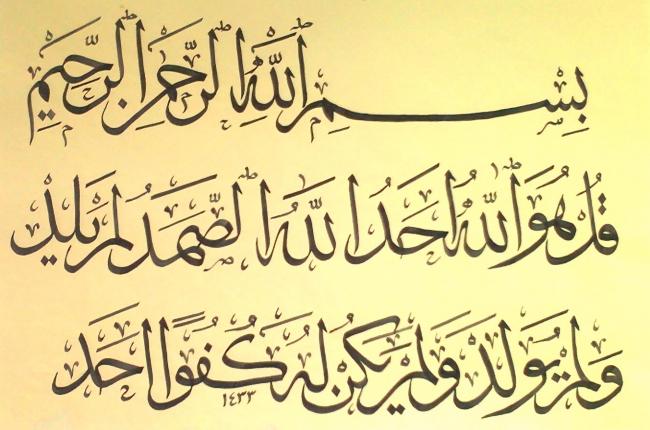 بِسْمِ ٱللَّهِ ٱلرَّحْمَٰنِ ٱلرَّحِيمِ
قُلْ هُوَ ٱللَّهُ أَحَدٌ ٱللَّهُ ٱلصَّمَدُ لَمْ يَلِدْ
وَلَمْ يُولَدْ وَلَمْ يَكُنْ لَهُ كُفُوًا أَحَدٌ
١٤٣٣